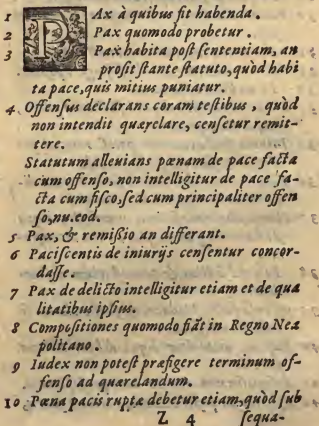 1 PAx à quibus fit habenda.
2 Pax quomodo probetur.
3 Pax habita post sententiam, an
prosit stante statuto, quòd habi
ta pace, quis mitius puniatur.
4 Offensus declarans coram testibus, quòd
non intendit quærelare, censetur remit-
tere.
Statutum alleuians pœnam de pace facta
cum offenso, non intelligitur de pace fa-
cta cum fisco, sed cum principaliter offen
so, nu. eod.
5 Pax, & remißio an differant.
6 Paciscentis de iniurijs censentur concor-
dasse.
7 Pax de delicto intelligitur etiam et de qua
litatibus ipsius.
8 Compositiones quomodo fiãt in Regno Nea
politano.
9 Iudex non potest præfigere terminum of-
fenso ad quærelandum.
10 Pœna pacis ruptæ debetur etiam, quòd sub
Z 4 sequa-